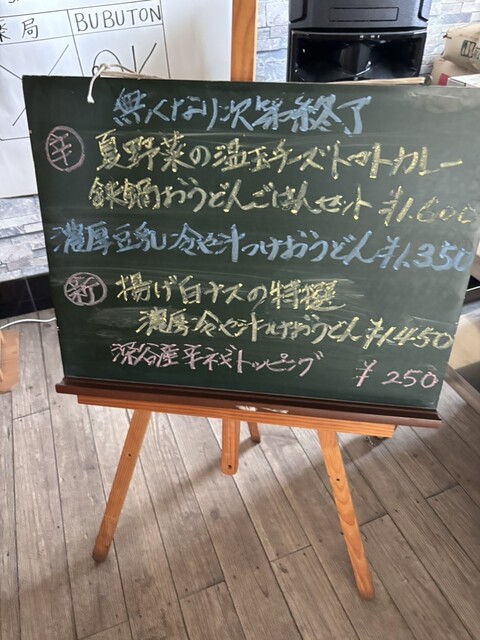 薬局 BUBUTON
無くなり次第終了
夏野菜の温玉チーズトマトカレー
鉄鍋おうどんごはんセット ¥1.600
濃厚豆乳冷や汁つけおうどん ¥1.350
新 揚げ白ナスの特選
濃厚冷や汁つけおうどん ¥1.450
深谷産平ネギトッピング ¥250